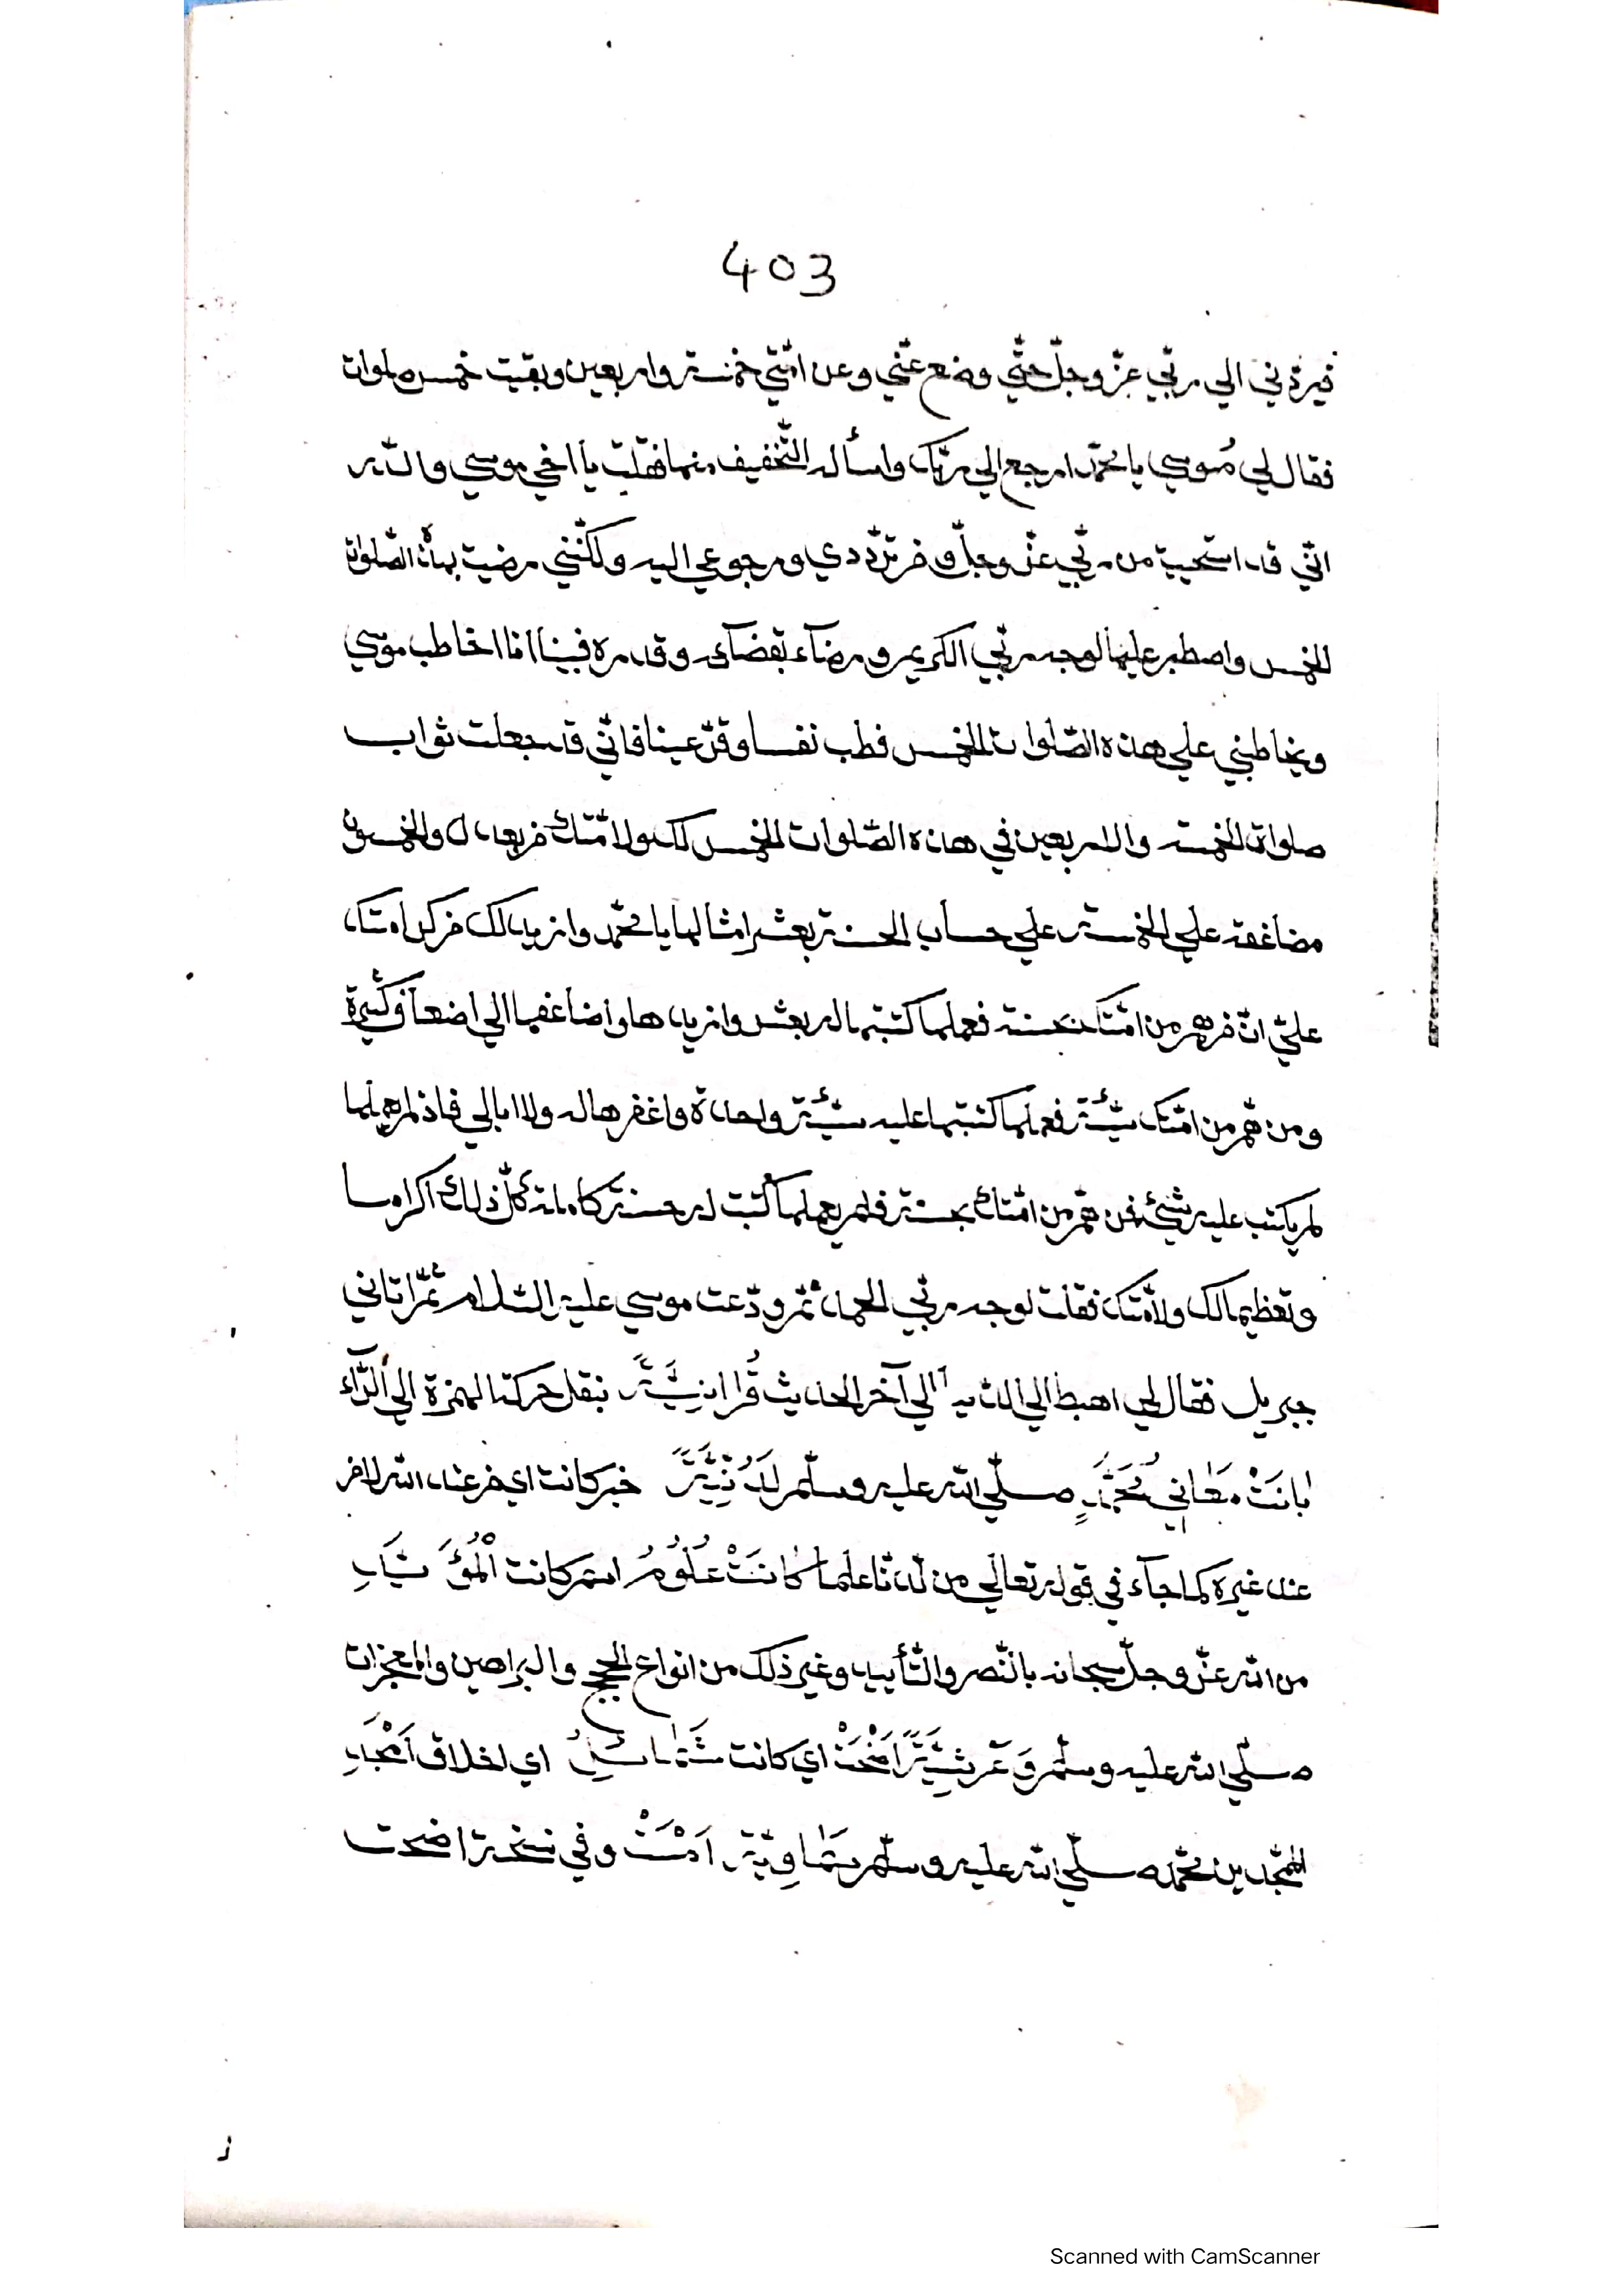 403
فيردّني الي ربّي عزّ وجلّ حتّي وضع عنّي وعن امّتي خمسة واربعين وبقيت خمس صلوات
فقال لي مُوسي يا محمّد ارجع الي ربّك واسأله التّخفيف منها فقلت يا اخي موسي والله
انّي قد استحيت من ربّي عزّ وجلّ في تردّدي ورجوعي اليه ولكنّني رضيت بهذه الصّلوات
الخمس واصطبر عليها لوجه ربّي الكريم ورضآء بقضآئه وقدره فبينا انا اخاطب موسي
ويخاطبني علي هذه الصّلوات الخمس فطب نفسا وقرّ عينا فانّي قد جعلت ثواب
صلوات الخمسة والاربعين في هذه الصّلوات الخمس لك ولامّتك فريعدل والخمسون
مضاعفة علي الخمسة علي حساب الحسنة بعشر امثالها يا محمّد وازيدلك من كرامتك
عليّ انّ من همّ من امّتك بحسنة فعملها كتبتها له بعشر وازيدها واضاعفها الي اضعاف كثيرة
ومن همّ من امّتك بسيّئة فعملها كتبتها عليه سيّئة واحدة واغفرها له ولا ابالي فاذ لم يعملها
لم يكتب عليه شيئ فمن همّ من امّتك بحسنة فلم يعملها كتبت له حسنة كاملة كلّ ذلك اكراما
وتعظيما لك ولامّتك فقلت لوجه ربّي الحمد ثمّ ودّعت موسي عليه السّلام ثمّ اتاني
جبريل فقال لي اهبط الي الدنيا الي آخر الحديث قُرا نِيَّةً بنقل حركة الهمزة الي الرّآء
بَانَتْ مَعَانِي مُحَمَّدٍ صلّي الله عليه وسلّم لَدُنِّيَّةً خبر كانت اي من عند الله لا من
عند غيره كما جآء في قوله تعالي من لدنّا علما كَانَتْ عُلُومُ اسم كانت الْمُؤَيَّدِ
من الله عزّ وجلّ سبحانه بالنّصر والتّأييد وغير ذلك من انواع الحجج والبراهين والمعجزات
صلّي الله عليه وسلّم وَعَرْشِيَّةً اَضْحَتْ اي كانت شَمَائِلُ اي اخلاق اَمْجَدِ
الممجّدين محمّد صلّي الله عليه وسلّم سَمَاوِيَّةً اَمْسَتْ وفي نسخة اضحت